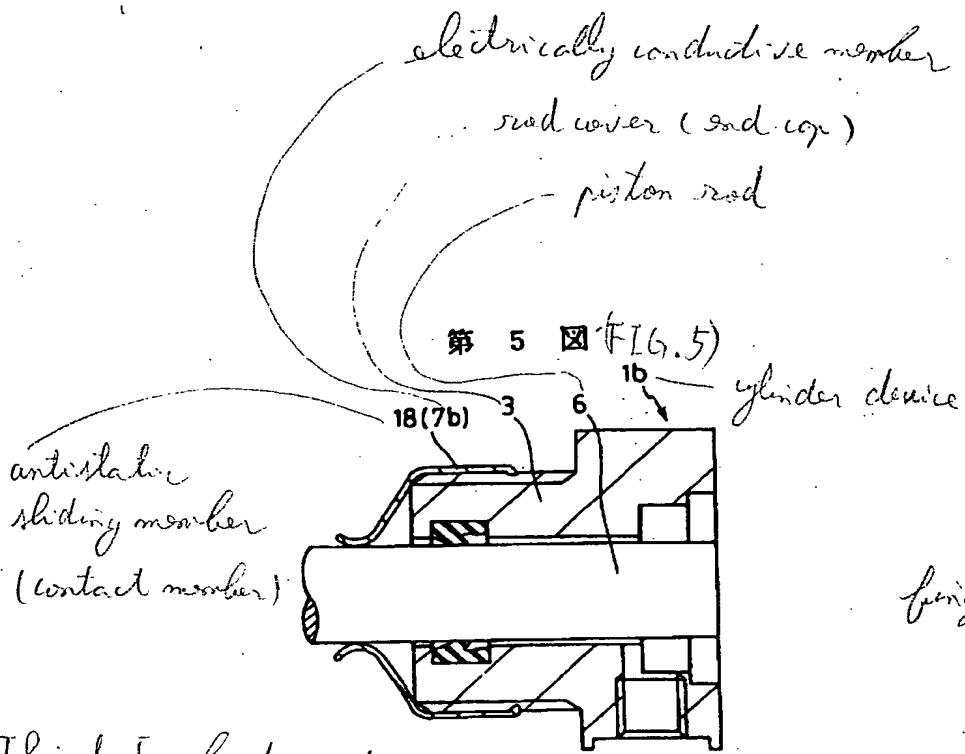 electrically conductive member
rod cover (end cap)
piston rod
第 5 図 (FIG. 5)
1b
cylinder device
18(7b)
3
6
antistatic
sliding member
(contact member)